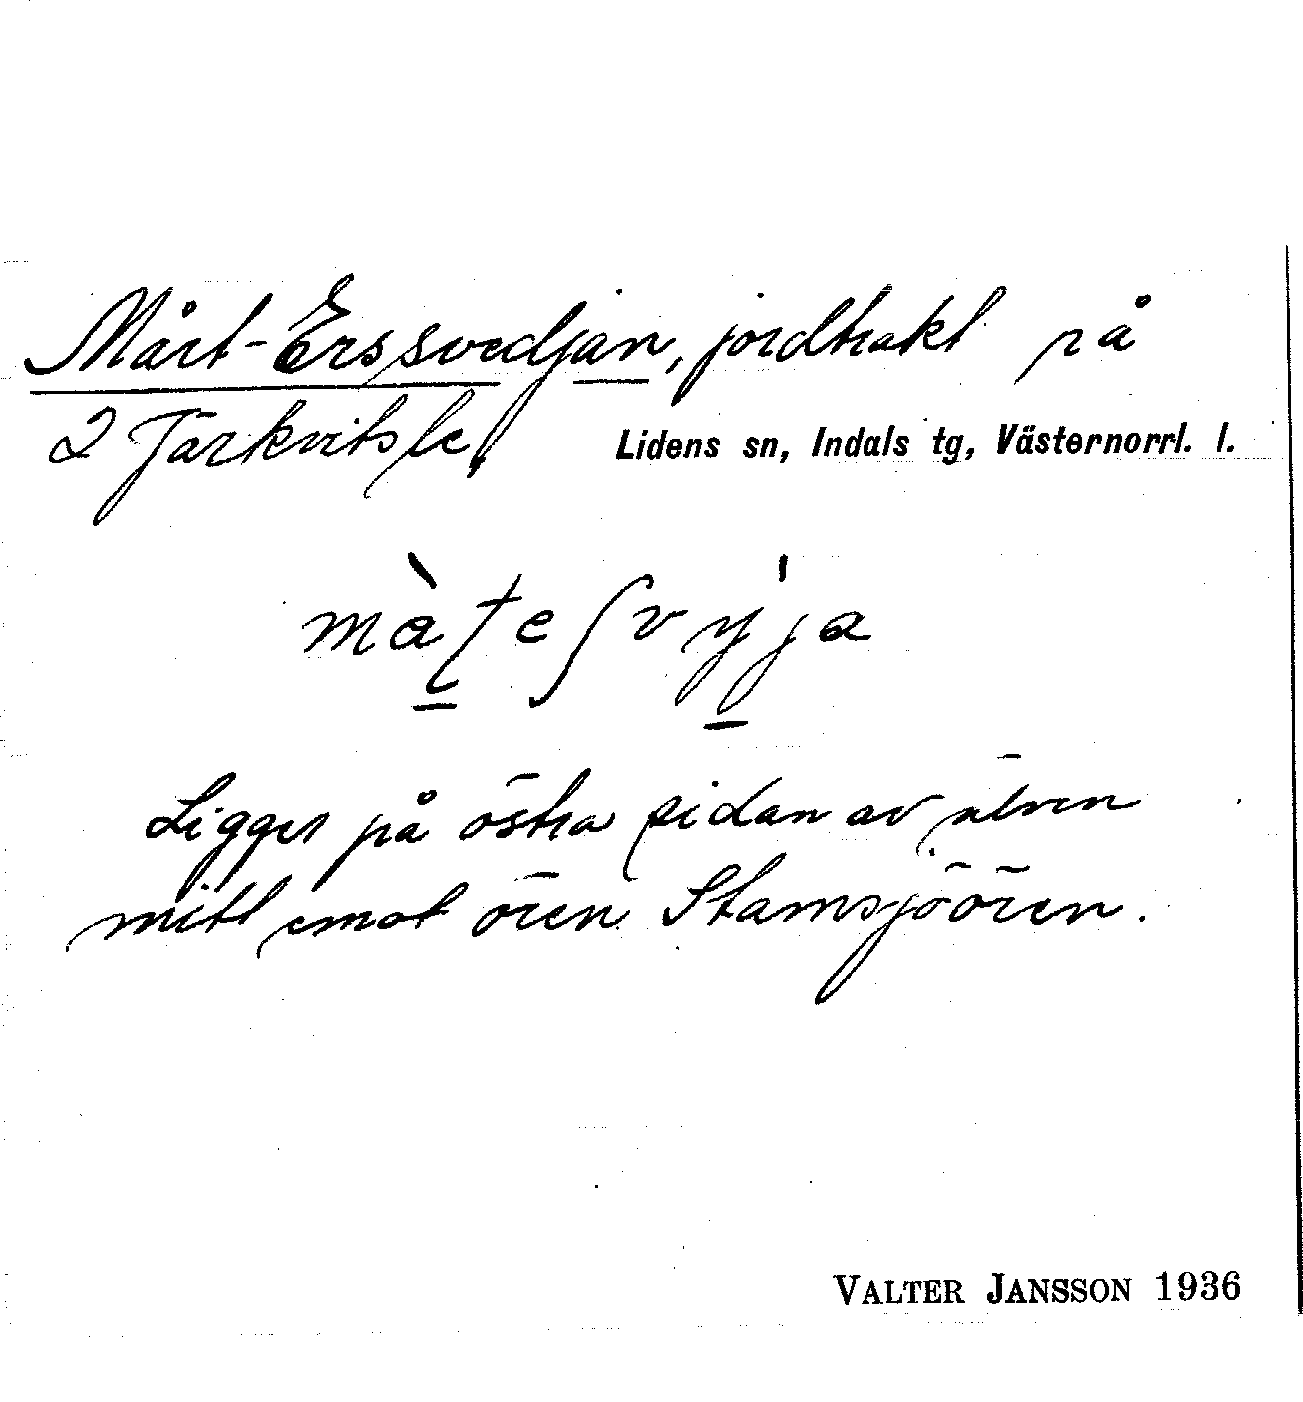 Mårt-Erssvedjan, jordtrakt på
2 Järkvitsle,
Lidens sn, Indals tg, Västernorrl. l.
màʈeʃvy̍ja
Ligger på östra sidan av älven
mitt emot ören Stamsjöören.
VALTER JANSSON 1936